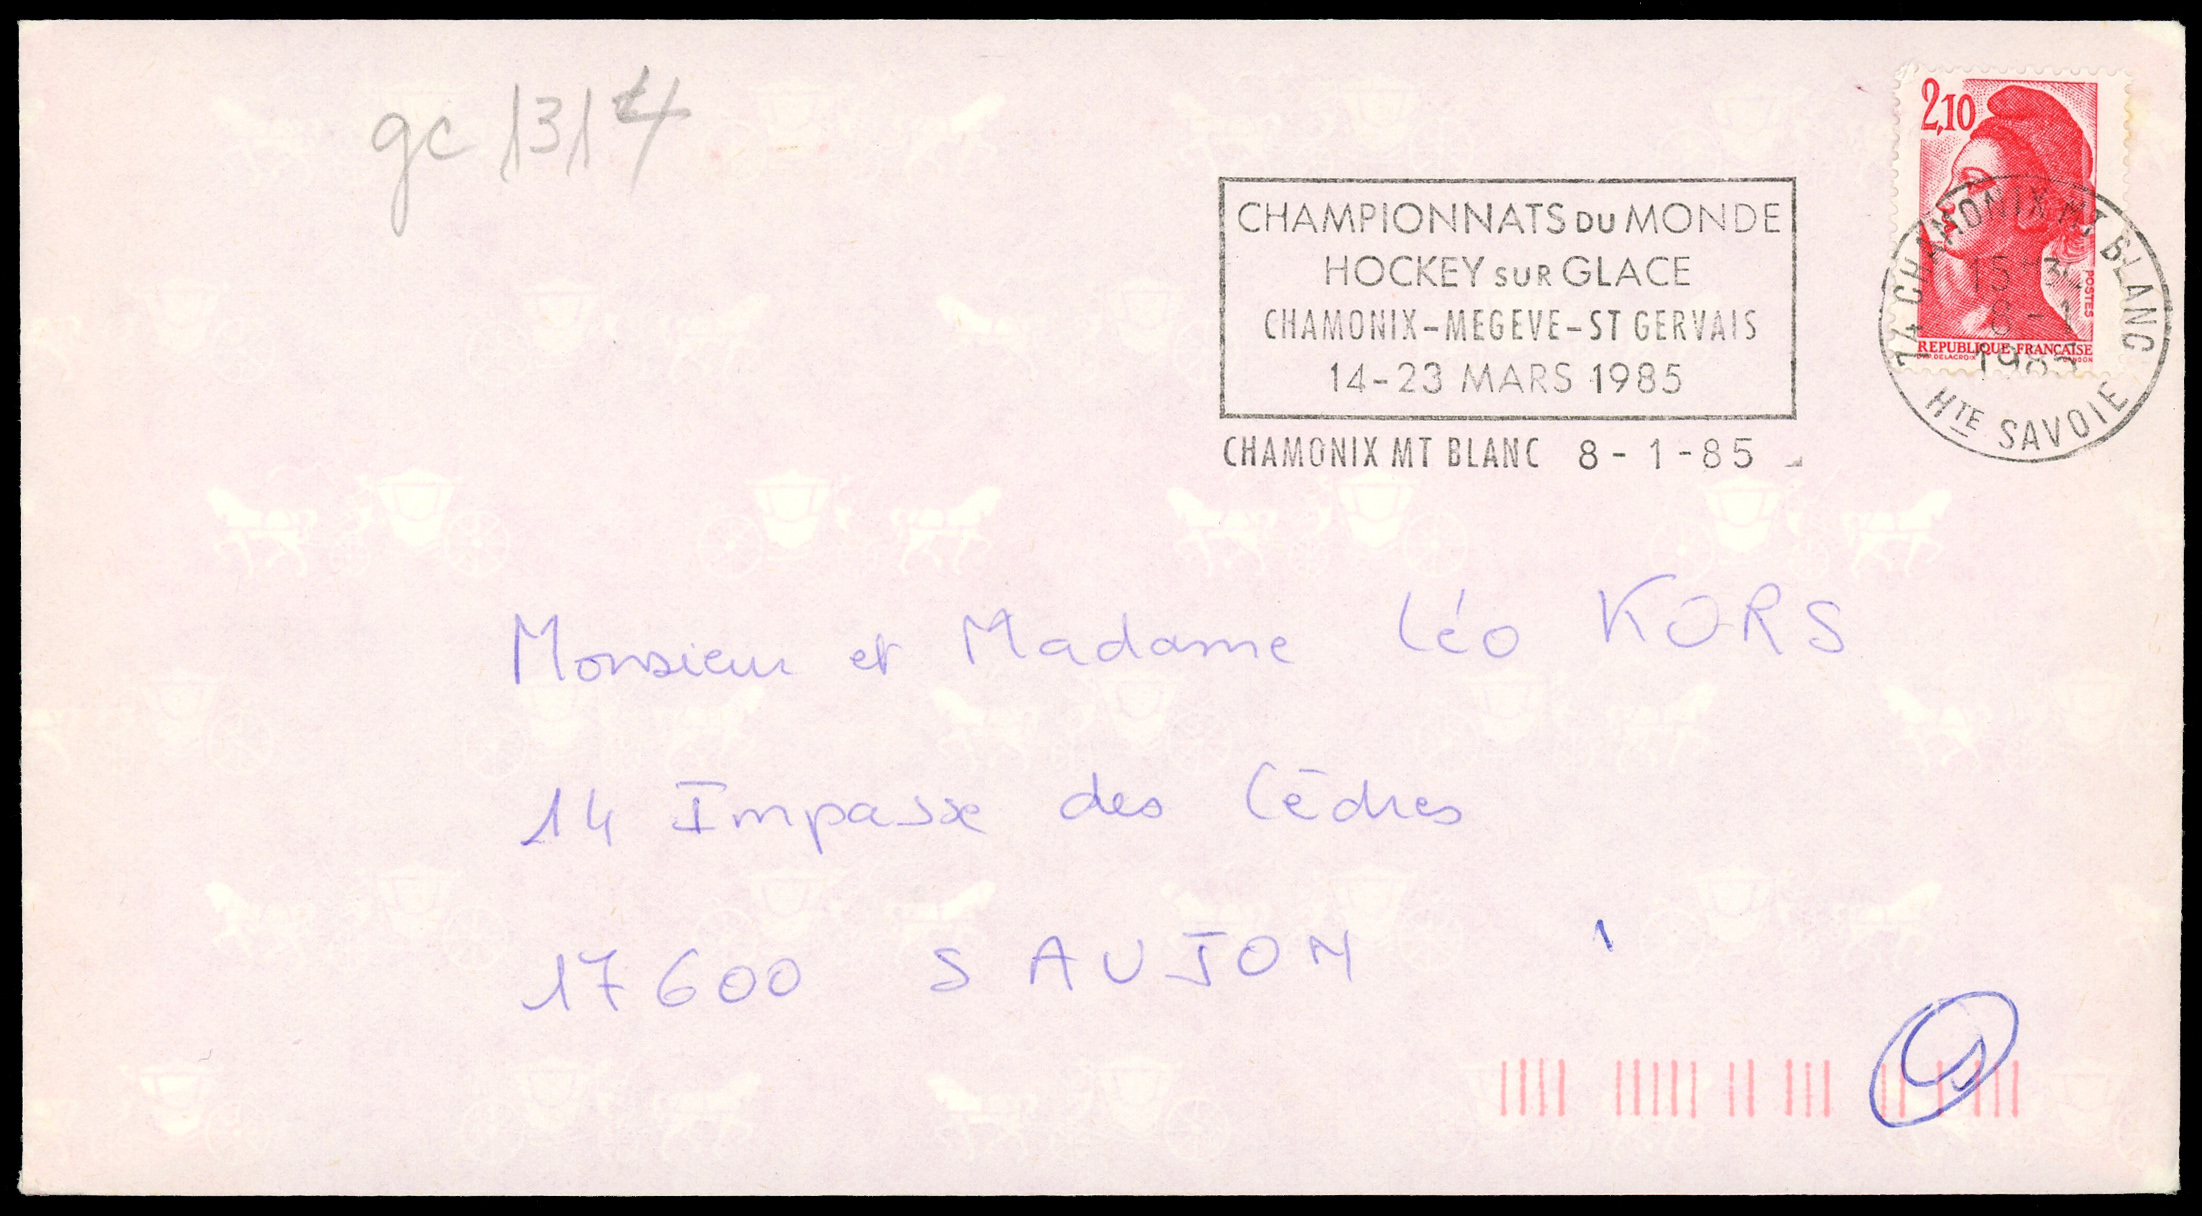 gc 1314
2,10
POSTES
REPUBLIQUE FRANÇAISE
CHAMPIONNATS DU MONDE
HOCKEY SUR GLACE
CHAMONIX-MEGEVE-ST GERVAIS
14-23 MARS 1985
CHAMONIX MT BLANC 8-1-85
74 CHAMONIX MT BLANC
15 30
8-1
1985
HTE SAVOIE
Monsieur et Madame Léo KORS
14 Impasse des Cèdres
17600 SAUJON